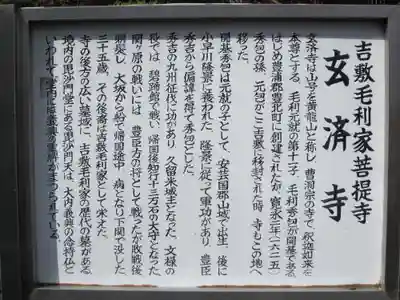 吉敷毛利家菩提寺
玄済寺
玄済寺は山号を黄龍山と称し、曹洞宗の寺で、釈迦如来を
本尊とする。毛利元就の第十一子、毛利秀包が開基である。
はじめ豊浦郡豊北町に創建されたが、寛永二年(一六二五)
秀包の孫、元包がここ吉敷に移封された時、寺もこの地へ
移った。
開基秀包は元就の子として、安芸国郡山城で出生、後に
小早川隆景に養われた。隆景に従って軍功があり、豊臣
秀吉から偏諱を得て秀包とした。
秀吉の九州征伐で功があり、久留米城主となった。文禄の
役では、碧蹄館で戦い、帰国後知行十三万石の大守となった。
関ヶ原の戦いには、豊臣方の将として戦ったが敗戦後
剃髪し、大坂から船で帰国途中、病となり下関で没した。
三十五歳。その後裔は吉敷毛利家として栄えた。
寺の後方の広い墓域に、吉敷毛利家の歴代の墓がある。
境内の毘沙門堂にある毘沙門天は、大内義興の念持仏と
いわれて、堂内には義興の霊牌がまつられている。